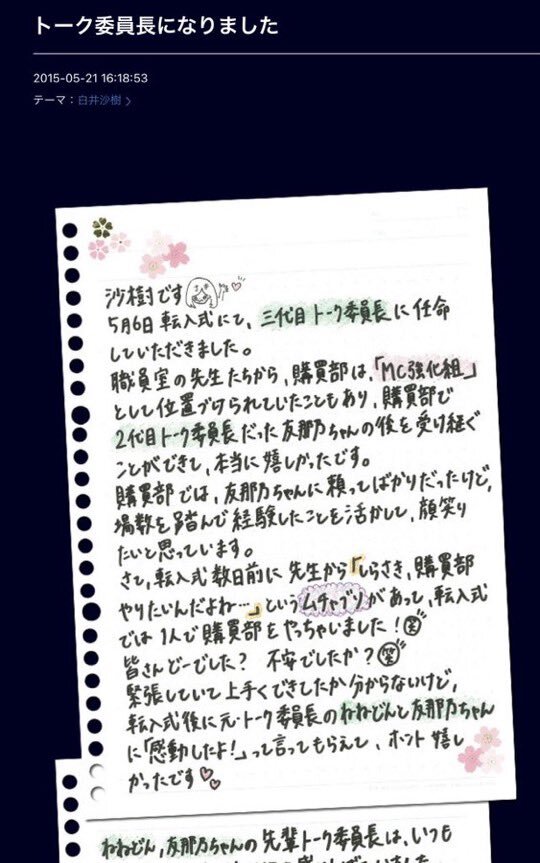 トーク委員長になりました
2015-05-21 16:18:53
テーマ：白井沙樹 >
沙樹です
5月6日 転入式にて、三代目トーク委員長に任命
していただきました。
職員室の先生たちから、購買部は、「MC強化組」
として位置づけられていたこともあり、購買部で
2代目トーク委員長だった友那乃ちゃんの後を受け継ぐ
ことができて、本当に嬉しかったです。
購買部では、友那乃ちゃんに頼ってばかりだったけど、
場数を踏んで経験したことを活かして、頑張り
たいと思っています。
さて、転入式数日前に先生から「しらさき、購買部
やりたいんだよね…」というムチャブリがあって、転入式
では1人で購買部をやっちゃいました！笑
皆さんどーでした？ 不安でしたか？笑
緊張していて上手くできたか分からないけど、
転入式後に元・トーク委員長のねねどんと友那乃ちゃん
に「感動したよ！」って言ってもらえて、ホント嬉し
かったです♡
ねねどん、友那乃ちゃんの先輩トーク委員長は、いつも